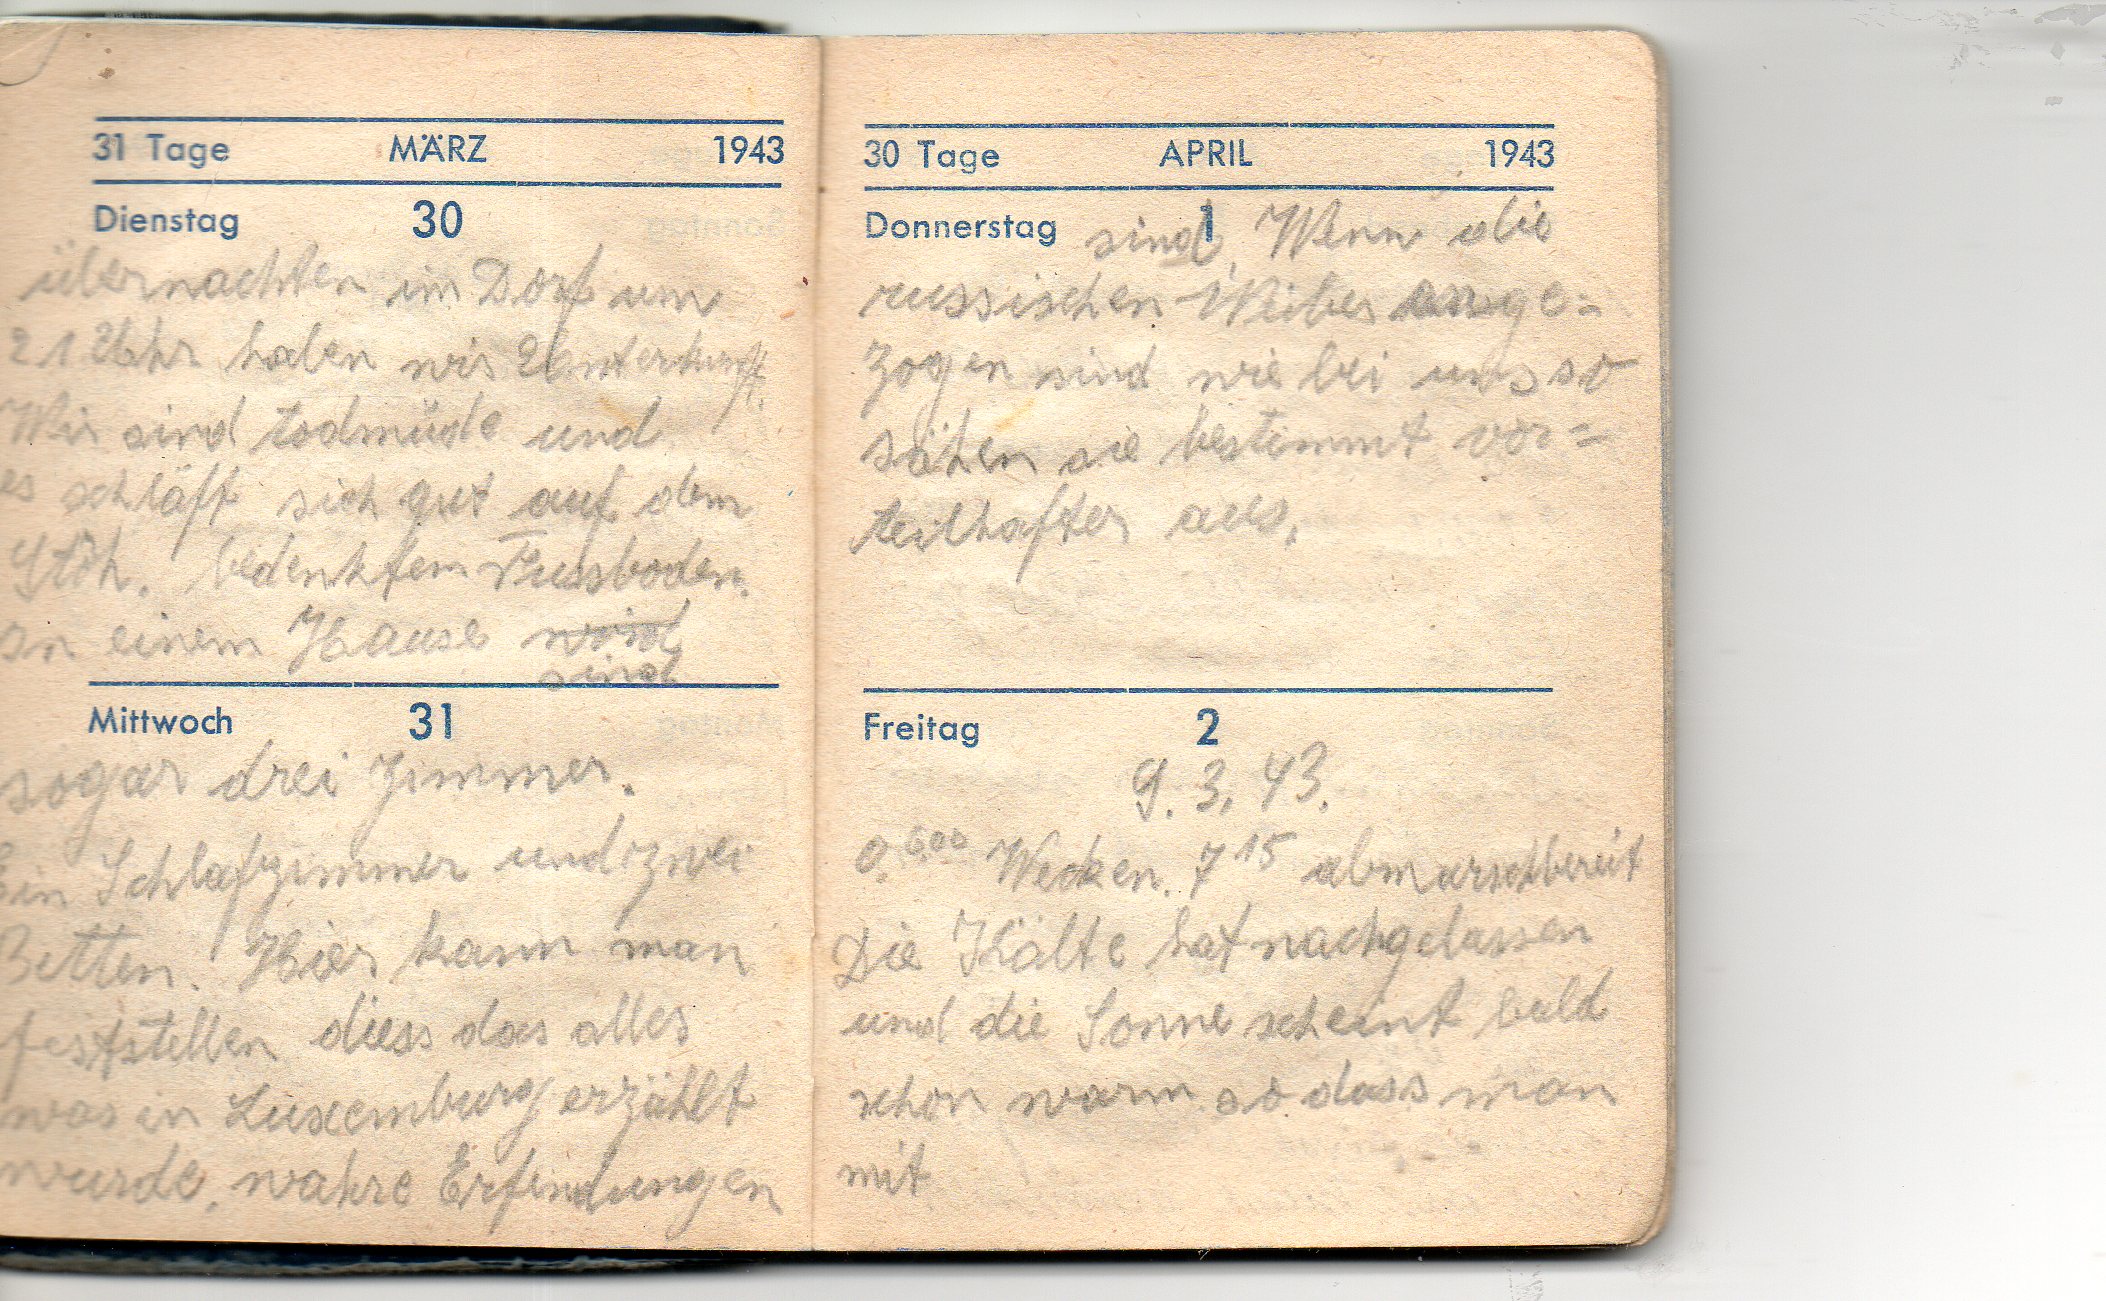 31 Tage MÄRZ 1943
Dienstag 30
übernachten im Dorf um
21 Uhr haben wir Unterkunft.
Wir sind todmüde und
es schläft sich gut auf dem
Stoh. bedenktem Fussboden.
In einem Hause wird
sind
Mittwoch 31
sogar drei Zimmer.
Ein Schlafzimmer und zwei
Betten. Hier kann man
feststellen diess das alles
was in Luxemburg erzählt
wurde, wahre Erfindungen
30 Tage APRIL 1943
Donnerstag 1
sind. Wenn die
russischen Weiber ange=
zogen sind wie bei uns so
sähen sie bestimmt vor=
teilhafter aus.
Freitag 2
9. 3. 43.
0.600 Wecken. 7 15 abmarschbereit
Die Kälte hat nachgelassen
und die Sonne scheint bald
schon warm so dass man
mit